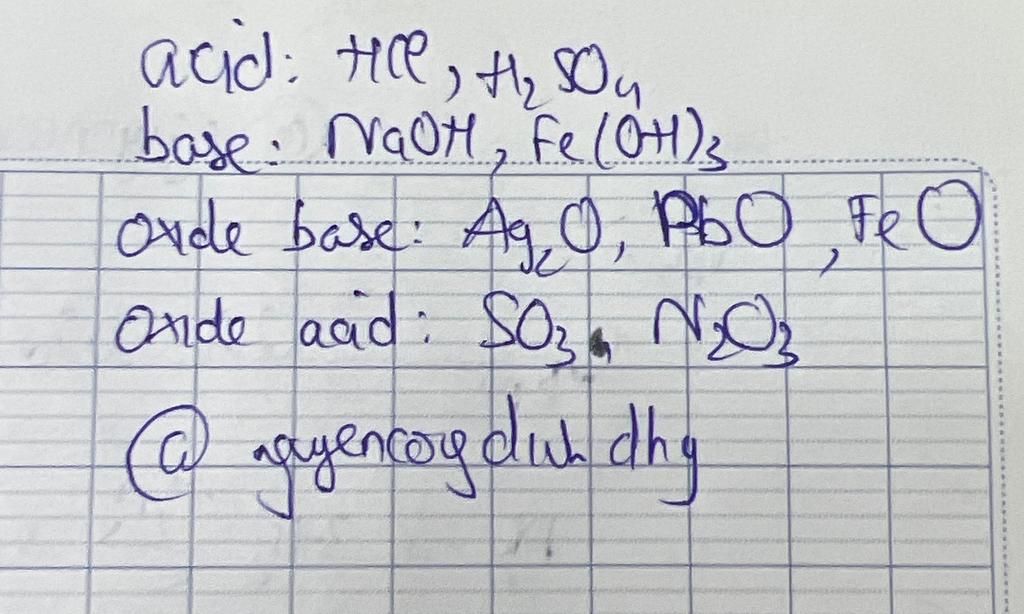 acid: HCl, H₂SO₄
base: NaOH, Fe(OH)₃
oxide base: Ag₂O, PbO, FeO
oxide acid: SO₃, N₂O₃
@ nguyencong dinh dhy